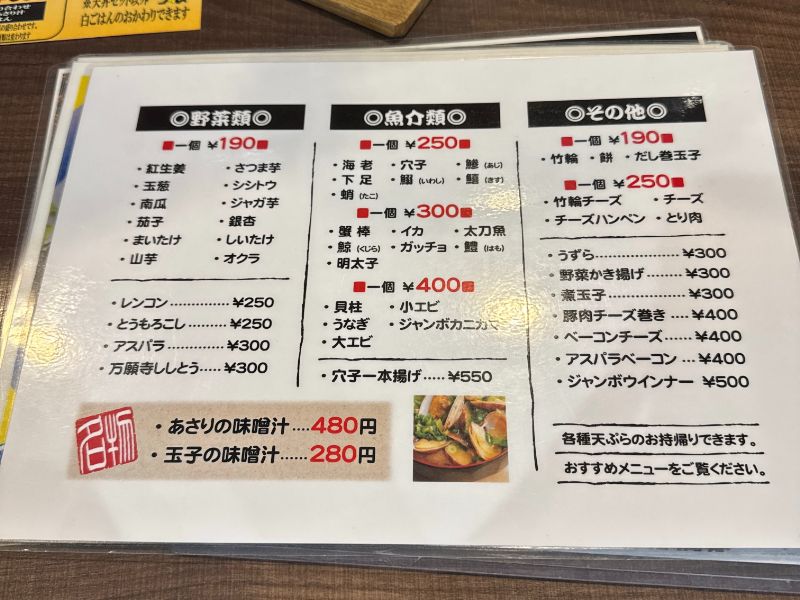 ※天丼セット以外
白ごはんのおかわりできます
◎野菜類◎
■一個 ¥190■
・紅生姜 ・さつま芋
・玉葱 ・シシトウ
・南瓜 ・ジャガ芋
・茄子 ・銀杏
・まいたけ ・しいたけ
・山芋 ・オクラ
・レンコン…………¥250
・とうもろこし………¥250
・アスパラ…………¥300
・万願寺ししとう…¥300
◎魚介類◎
■一個 ¥250■
・海老 ・穴子 ・鯵(あじ)
・下足 ・鰯(いわし) ・鱚(きす)
・蛸(たこ)
■一個 ¥300■
・蟹棒 ・イカ ・太刀魚
・鯨(くじら) ・ガッチョ ・鱧(はも)
・明太子
■一個 ¥400■
・貝柱 ・小エビ
・うなぎ ・ジャンボカニカマ
・大エビ
・穴子一本揚げ……¥550
◎その他◎
■一個 ¥190■
・竹輪 ・餅 ・だし巻玉子
■一個 ¥250■
・竹輪チーズ ・チーズ
・チーズハンペン ・とり肉
・うずら………………¥300
・野菜かき揚げ………¥300
・煮玉子………………¥300
・豚肉チーズ巻き…¥400
・ベーコンチーズ……¥400
・アスパラベーコン…¥400
・ジャンボウインナー ¥500
各種天ぷらのお持帰りできます。
おすすめメニューをご覧ください。
名物
・あさりの味噌汁…480円
・玉子の味噌汁……280円